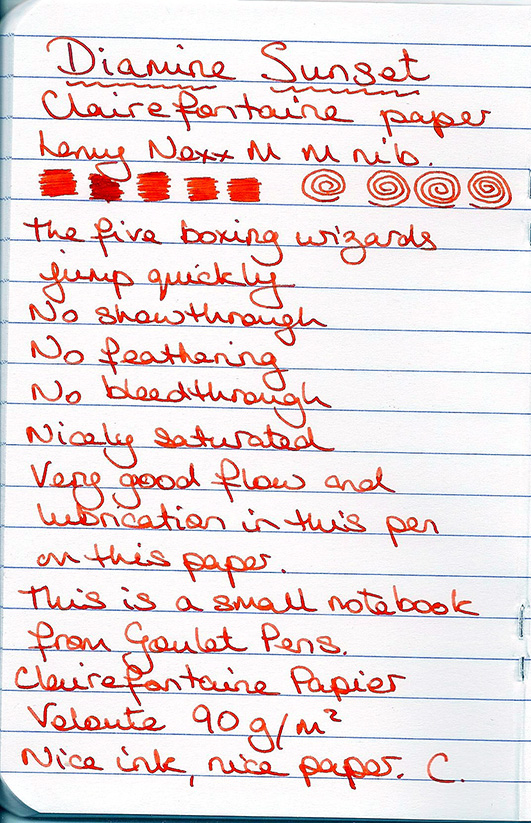 Diamine Sunset
Clairefontaine paper
Lamy Nexx M M nib.
the five boxing wizards
jump quickly
No showthrough
No feathering
No bleedthrough
Nicely saturated
Very good flow and
lubrication in this pen
on this paper.
This is a small notebook
from Goulet Pens.
Clairefontaine Papier
Veloute 90 g/m²
Nice ink, nice paper. C.